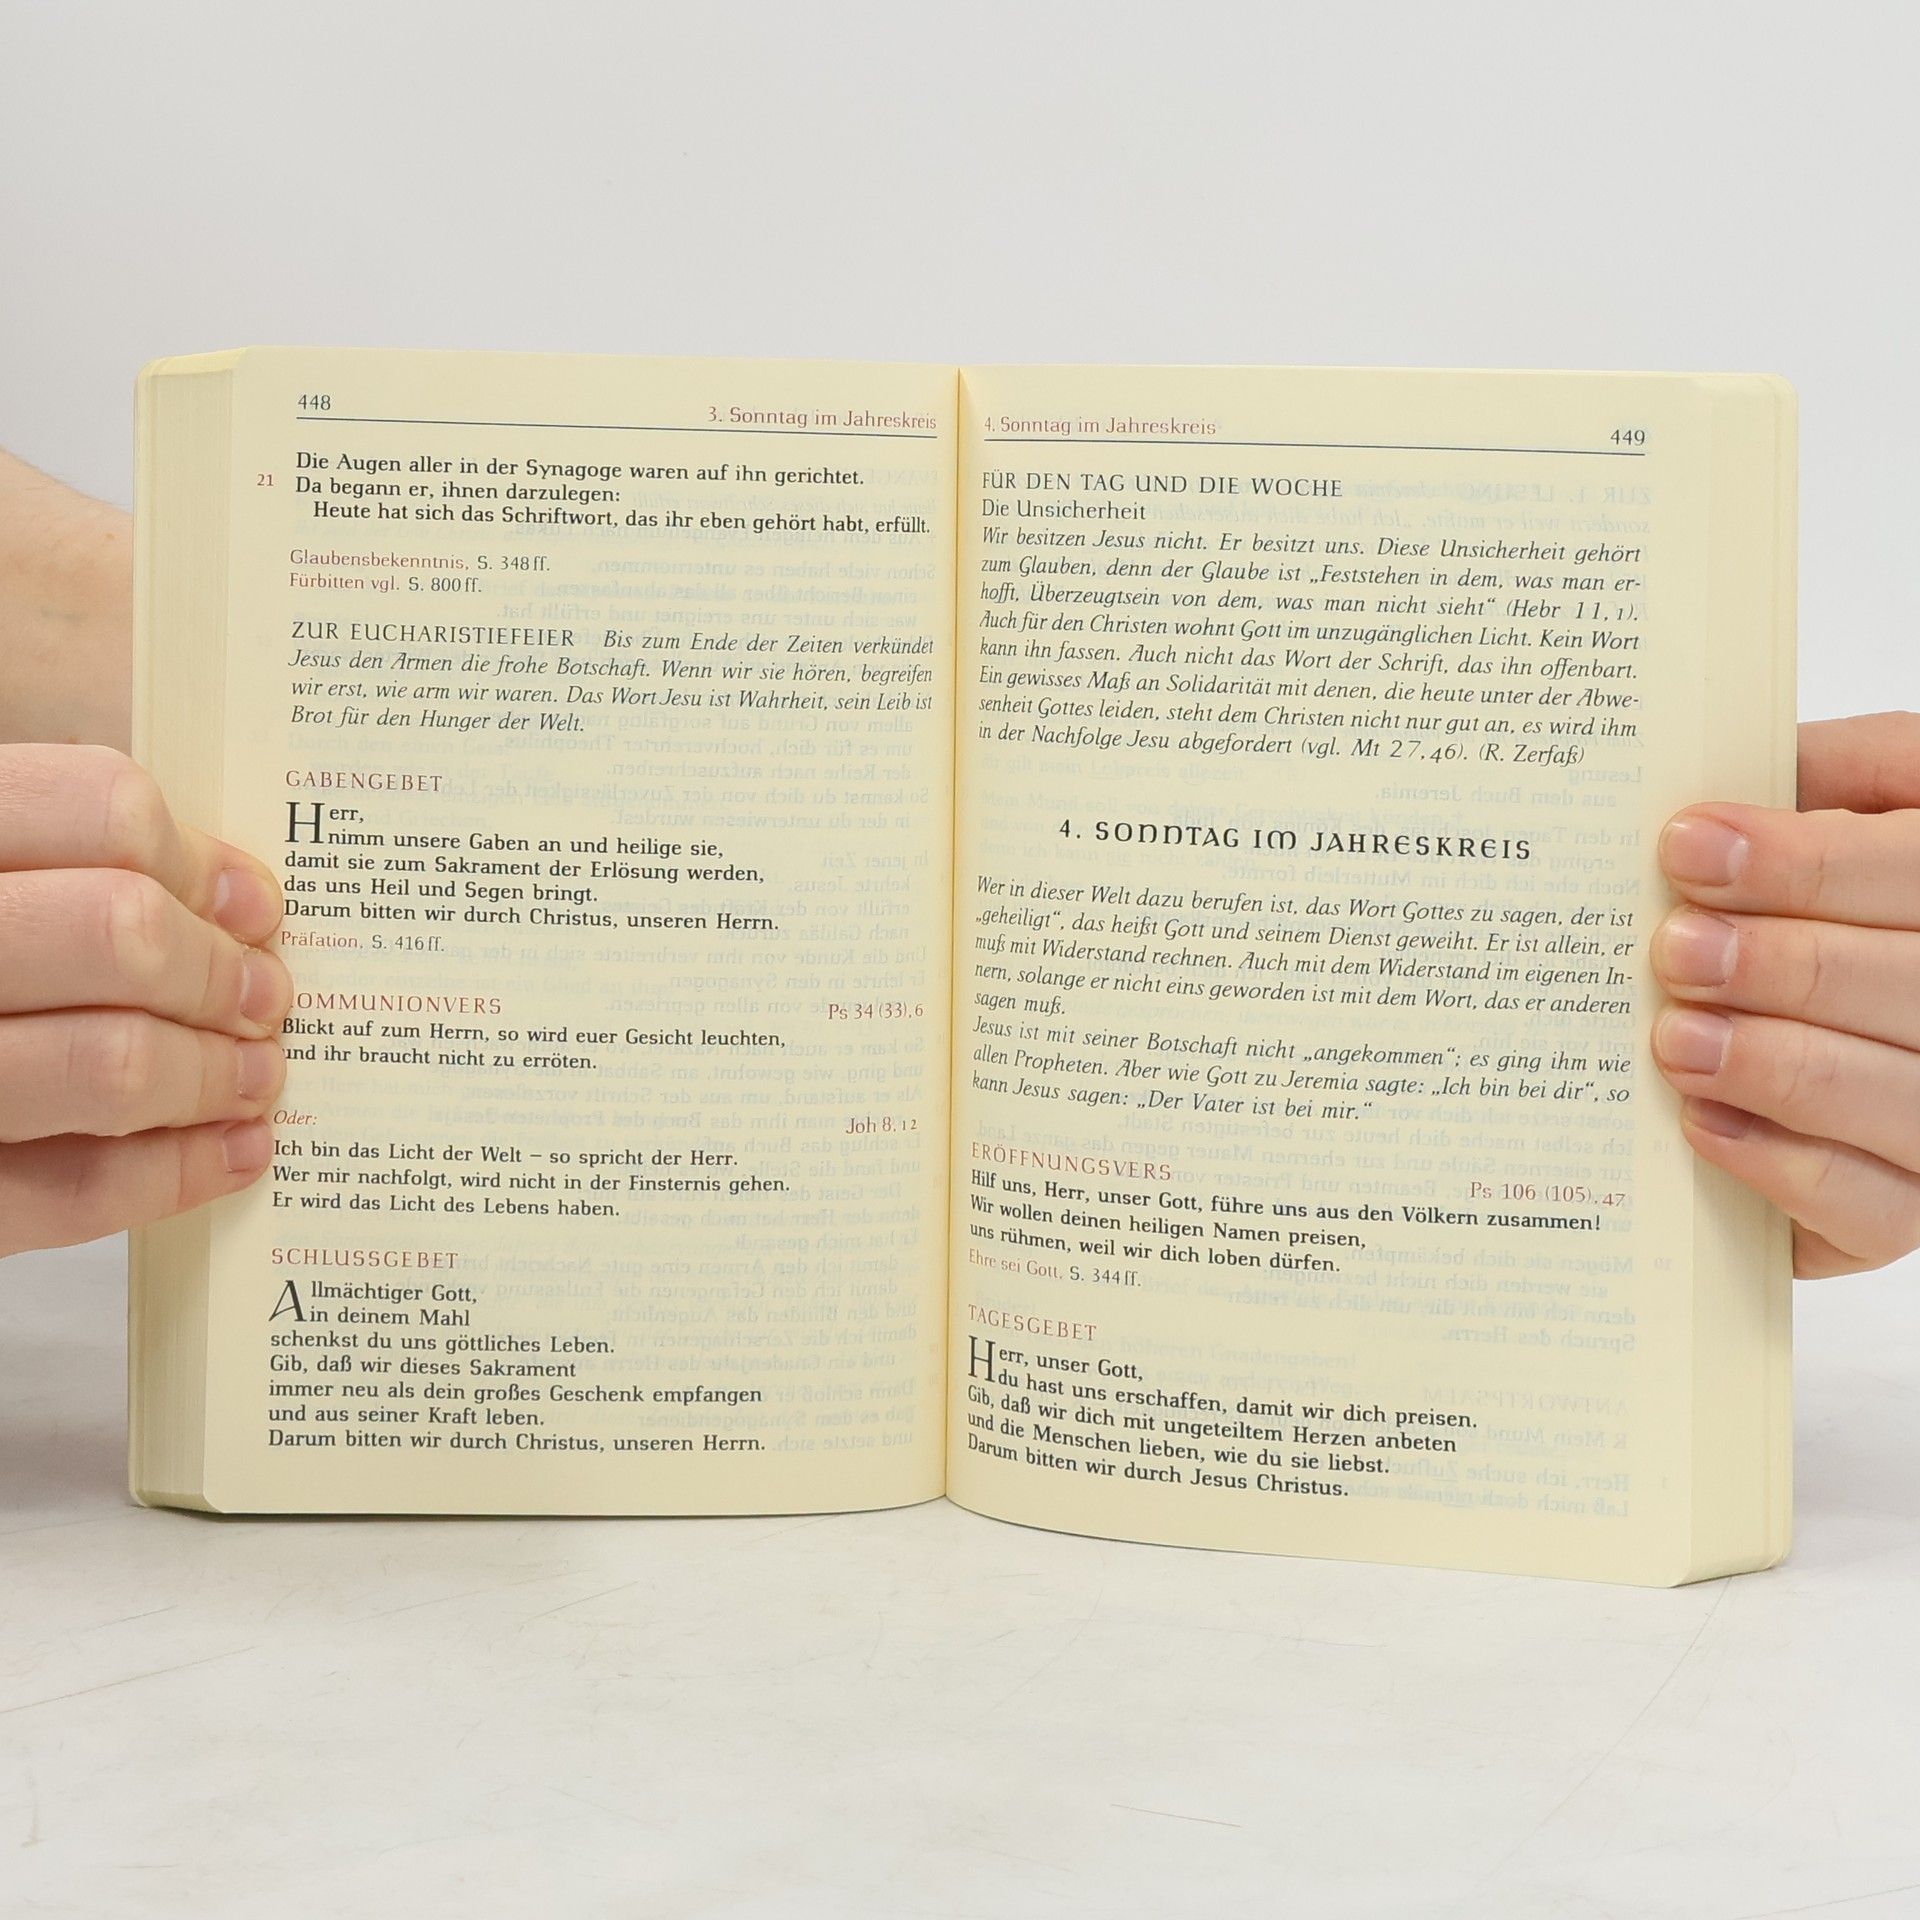 448
3. Sonntag im Jahreskreis
Die Augen aller in der Synagoge waren auf ihn gerichtet.
21 Da begann er, ihnen darzulegen:
Heute hat sich das Schriftwort, das ihr eben gehört habt, erfüllt.
Glaubensbekenntnis, S. 348 ff.
Fürbitten vgl. S. 800 ff.
ZUR EUCHARISTIEFEIER Bis zum Ende der Zeiten verkündet
Jesus den Armen die frohe Botschaft. Wenn wir sie hören, begreifen
wir erst, wie arm wir waren. Das Wort Jesu ist Wahrheit, sein Leib ist
Brot für den Hunger der Welt.
GABENGEBET
Herr,
nimm unsere Gaben an und heilige sie,
damit sie zum Sakrament der Erlösung werden,
das uns Heil und Segen bringt.
Darum bitten wir durch Christus, unseren Herrn.
Präfation, S. 416 ff.
OMMUNIONVERS
Ps 34 (33), 6
Blickt auf zum Herrn, so wird euer Gesicht leuchten,
und ihr braucht nicht zu erröten.
Oder:
Joh 8, 12
Ich bin das Licht der Welt – so spricht der Herr.
Wer mir nachfolgt, wird nicht in der Finsternis gehen.
Er wird das Licht des Lebens haben.
SCHLUSSGEBET
Allmächtiger Gott,
in deinem Mahl
schenkst du uns göttliches Leben.
Gib, daß wir dieses Sakrament
immer neu als dein großes Geschenk empfangen
und aus seiner Kraft leben.
Darum bitten wir durch Christus, unseren Herrn.
4. Sonntag im Jahreskreis
449
FÜR DEN TAG UND DIE WOCHE
Die Unsicherheit
Wir besitzen Jesus nicht. Er besitzt uns. Diese Unsicherheit gehört
zum Glauben, denn der Glaube ist „Feststehen in dem, was man er-
hofft, Überzeugtsein von dem, was man nicht sieht“ (Hebr 11, 1).
Auch für den Christen wohnt Gott im unzugänglichen Licht. Kein Wort
kann ihn fassen. Auch nicht das Wort der Schrift, das ihn offenbart.
Ein gewisses Maß an Solidarität mit denen, die heute unter der Abwe-
senheit Gottes leiden, steht dem Christen nicht nur gut an, es wird ihm
in der Nachfolge Jesu abgefordert (vgl. Mt 27, 46). (R. Zerfaß)
4. SONNTAG IM JAHRESKREIS
Wer in dieser Welt dazu berufen ist, das Wort Gottes zu sagen, der ist
„geheiligt“, das heißt Gott und seinem Dienst geweiht. Er ist allein, er
muß mit Widerstand rechnen. Auch mit dem Widerstand im eigenen In-
nern, solange er nicht eins geworden ist mit dem Wort, das er anderen
sagen muß.
Jesus ist mit seiner Botschaft nicht „angekommen“; es ging ihm wie
allen Propheten. Aber wie Gott zu Jeremia sagte: „Ich bin bei dir“, so
kann Jesus sagen: „Der Vater ist bei mir.“
ERÖFFNUNGSVERS
Ps 106 (105), 47
Hilf uns, Herr, unser Gott, führe uns aus den Völkern zusammen!
Wir wollen deinen heiligen Namen preisen,
uns rühmen, weil wir dich loben dürfen.
Ehre sei Gott, S. 344 ff.
TAGESGEBET
Herr, unser Gott,
du hast uns erschaffen, damit wir dich preisen.
Gib, daß wir dich mit ungeteiltem Herzen anbeten
und die Menschen lieben, wie du sie liebst.
Darum bitten wir durch Jesus Christus.